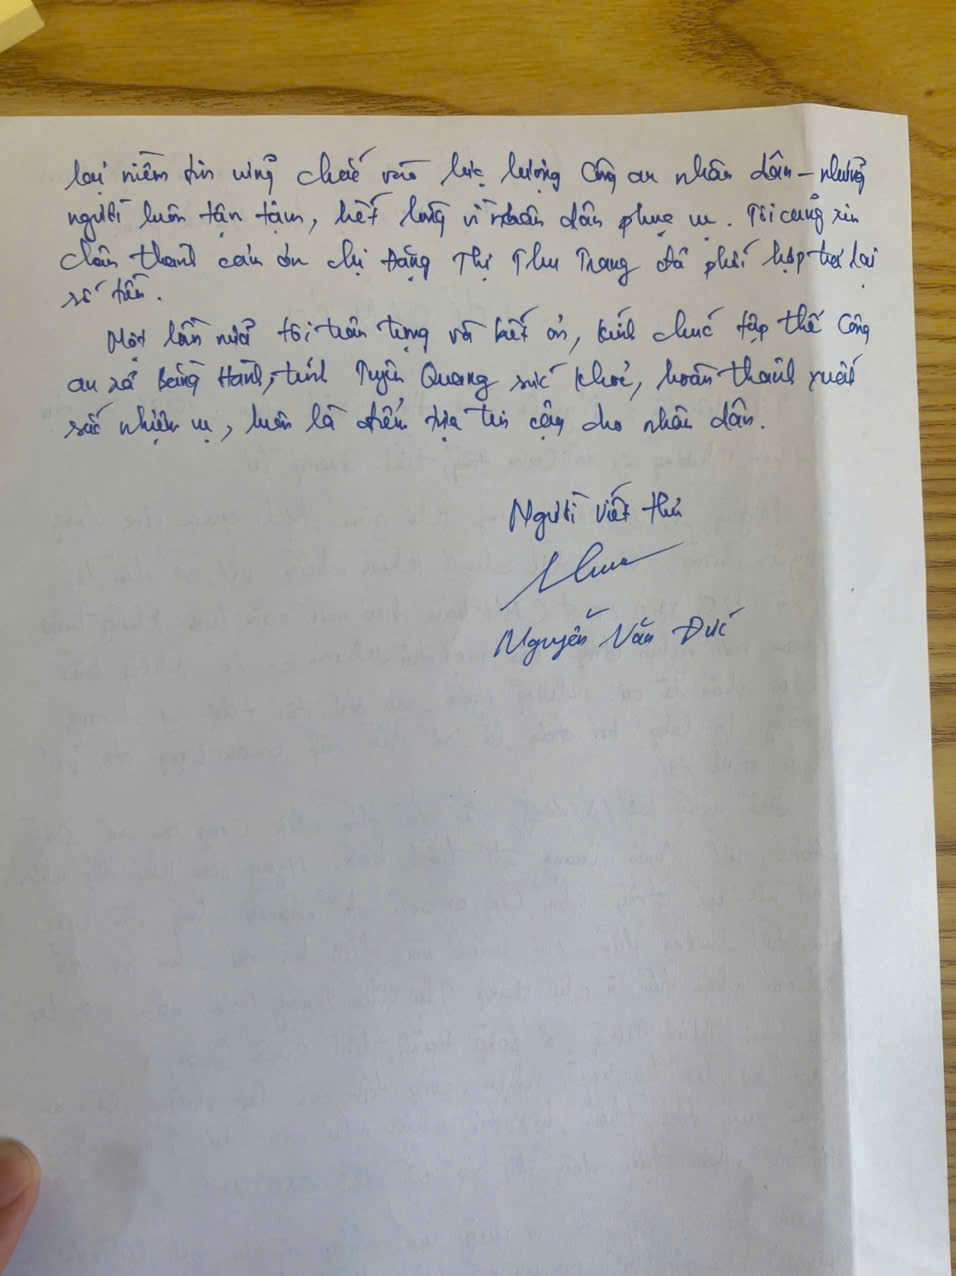 lại niềm tin vững chắc vào lực lượng Công an nhân dân - những
người luôn tận tâm, hết lòng vì nhân dân phục vụ. Tôi cũng xin
chân thành cảm ơn chị Đặng Thị Thu Trang đã phối hợp trả lại
số tiền.
Một lần nữa tôi trân trọng và biết ơn, kính chúc tập thể Công
an xã Bằng Hành, tỉnh Tuyên Quang sức khoẻ, hoàn thành xuất
sắc nhiệm vụ, luôn là điểm tựa tin cậy cho nhân dân.
Người viết thư
Nguyễn Văn Đức